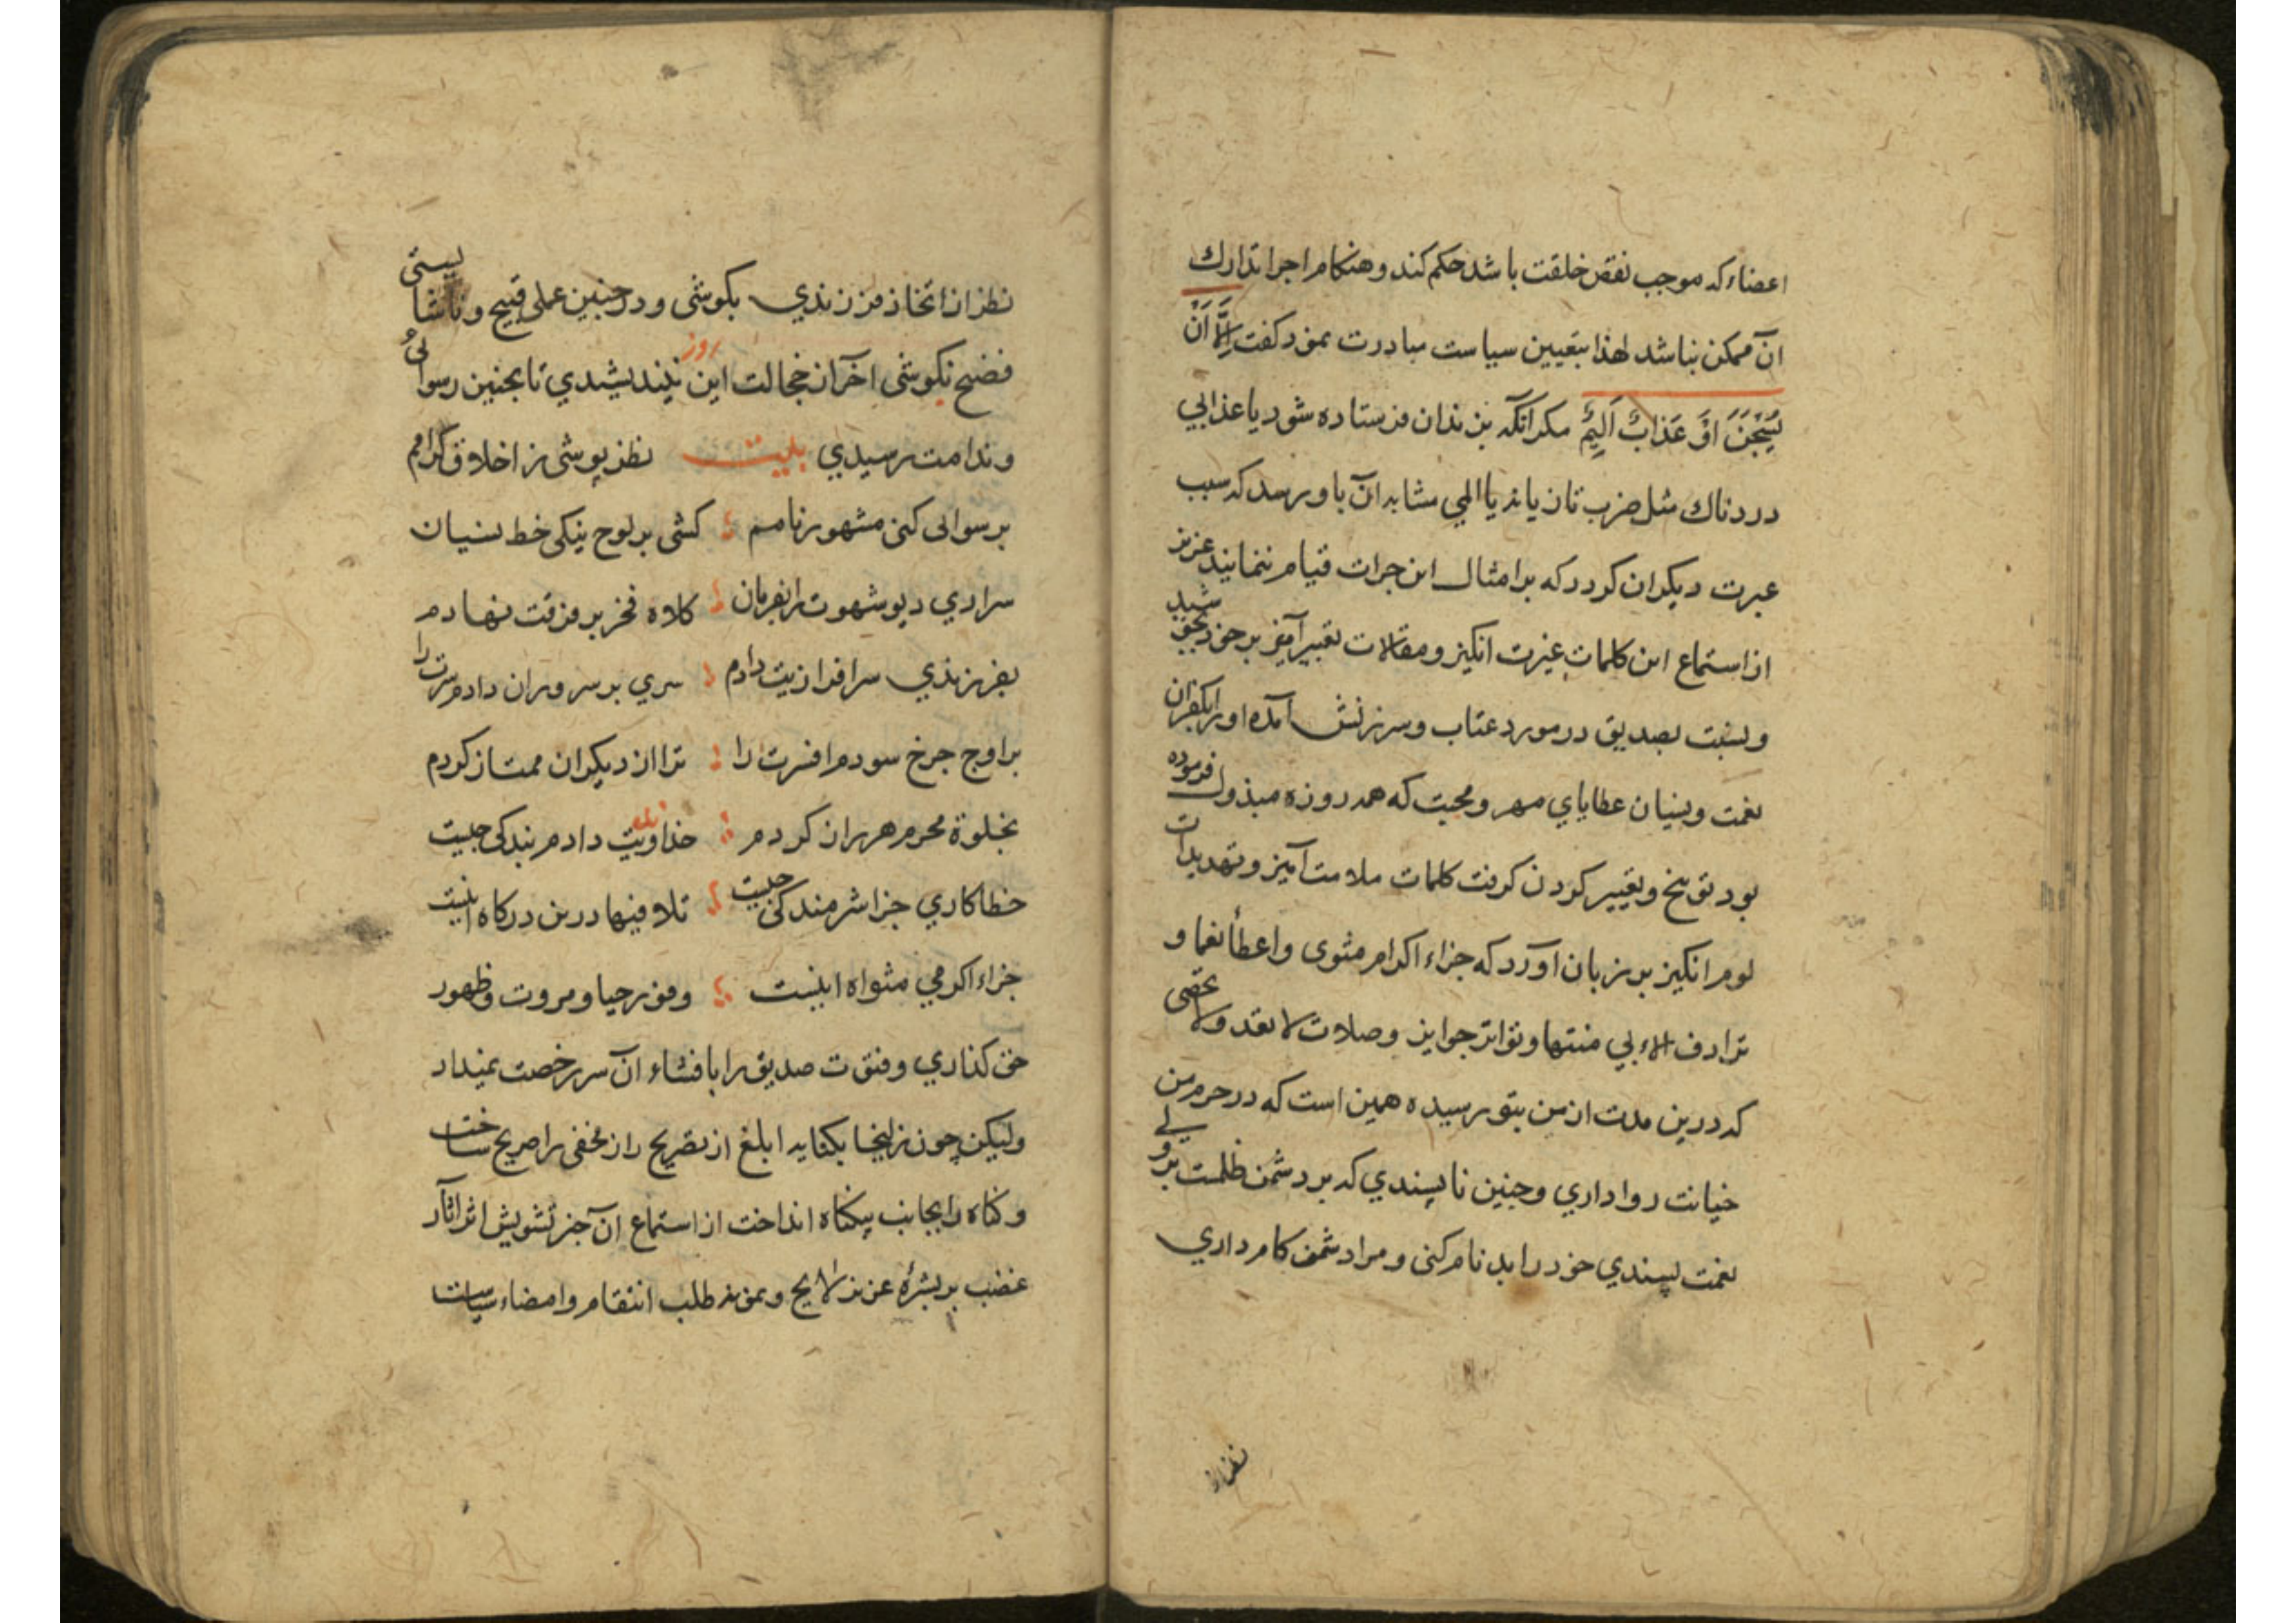 اعضاء که موجب نقص خلقت باشد حکم کند و هنکام اجرا تدارك
آن ممکن نباشد لهذا بتعیین سیاست مبادرت نمود کفت اِلَّا اَنْ
یُسْجَنَ اَوْ عَذَابٌ اَلِیْمٌ مکر انکه بزندان فرستاده شود یا عذابي
دردناك مثل ضرب تازیانه یا المي مشابه آن باو رسد که سبب
عبرت دیکران کردد که بر امثال این جرات قیام ننمایند عزیز
از استماع این کلمات غیرت انکیز و مقالات تعبیر آمیز بر خود بجو شید
و نسبت بصدیق در مورد عتاب و سرزنش آمده او را بکفران
نعمت و نسیان عطایاي مهر و محبت که همه روزه مبذول فرموده
بود توبیخ و تعییر کردن کرفت کلمات ملامت آمیز و تهدیدات
لوم انکیز بر زبان آورد که جزاء اکرام مثوی و اعطأ نعما و
ترادف الاء بي منتها و تواتر جوایز و صلات لا تعد و لا تحصی
که درین مدت از من بتو رسیده همین است که در حرم من
خیانت روا داري و چنین ناپسندي که بر دشمن ظلمت بر و لي
نعمت پسندي خود را بد نام کنی و مرا دشمن کام داري
نظر از
نظر از اتخاذ فرزندي بکوشی و در چنین عملی قبیح و ناشایستی
فضیح نکوشی آخر از خجالت این روز نیندیشیدي تا بچنین رسوائی
و ندامت رسیدي بیت نظر پوشی ز اخلاق کرامم
برسوائی کنی مشهور نامم کشی بر لوح نیکی خط نسیان
سراري دیو شهوت را بفرمان کلاه فخر بر فرقت نهادم
بفرزندي سرافرازیت دادم سري بر سروران دادم سرت را
بر اوج چرخ سودم افسرت را ترا از دیکران ممتاز کردم
بخلوة محرم هر راز کردم خداوندیت دادم بندکی چیست
خطاکاري جز اشرمندکی چیست تلافیها درین درکاه اینست
جزاء اکرمي مثواه اینست وفور حیا و مروت و ظهور
حق کذاري و فتوت صدیق را بافشاء آن سر رخصت نمیداد
ولیکن چون زلیخا بکنایه ابلغ از تصریح راز مخفی را صریح ساخت
و کناه را بجانب بیکناه انداخت از استماع آن جز تشویش اثر آثار
غضب بر بشرهٔ عزیز لایح و بموجب طلب انتقام و امضاء سیاست